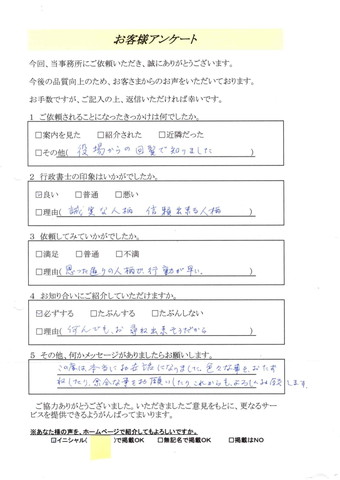 お客様アンケート
今回、当事務所にご依頼いただき、誠にありがとうございます。
今後の品質向上のため、お客さまからのお声をいただいております。
お手数ですが、ご記入の上、返信いただければ幸いです。
1 ご依頼されることになったきっかけは何でしたか。
□案内を見た □紹介された □近隣だった
□その他( 役場からの回覧で知りました )
2 行政書士の印象はいかがでしたか。
☑良い □普通 □悪い
□理由( 誠実な人柄 信頼出来る人柄 )
3 依頼してみていかがでしたか。
□満足 □普通 □不満
□理由( 思った通りの人柄で、行動が早い。 )
4 お知り合いにご紹介していただけますか。
☑必ずする □たぶんする □たぶんしない
□理由( 何んでも、お尋ね出来そうだから )
5 その他、何かメッセージがありましたらお願いします。
この度は本当にお世話になりました。色々な事を、おたず
ねしたり、余分な事をお願いしたり これからも、よろしくお願します。
ご協力ありがとうございました。いただきましたご意見をもとに、更なるサー
ビスを提供できるようがんばってまいります。
※あなた様の声を、ホームページで紹介してもよろしいですか。
☑イニシャル( )で掲載OK □無記名で掲載OK □掲載はNO